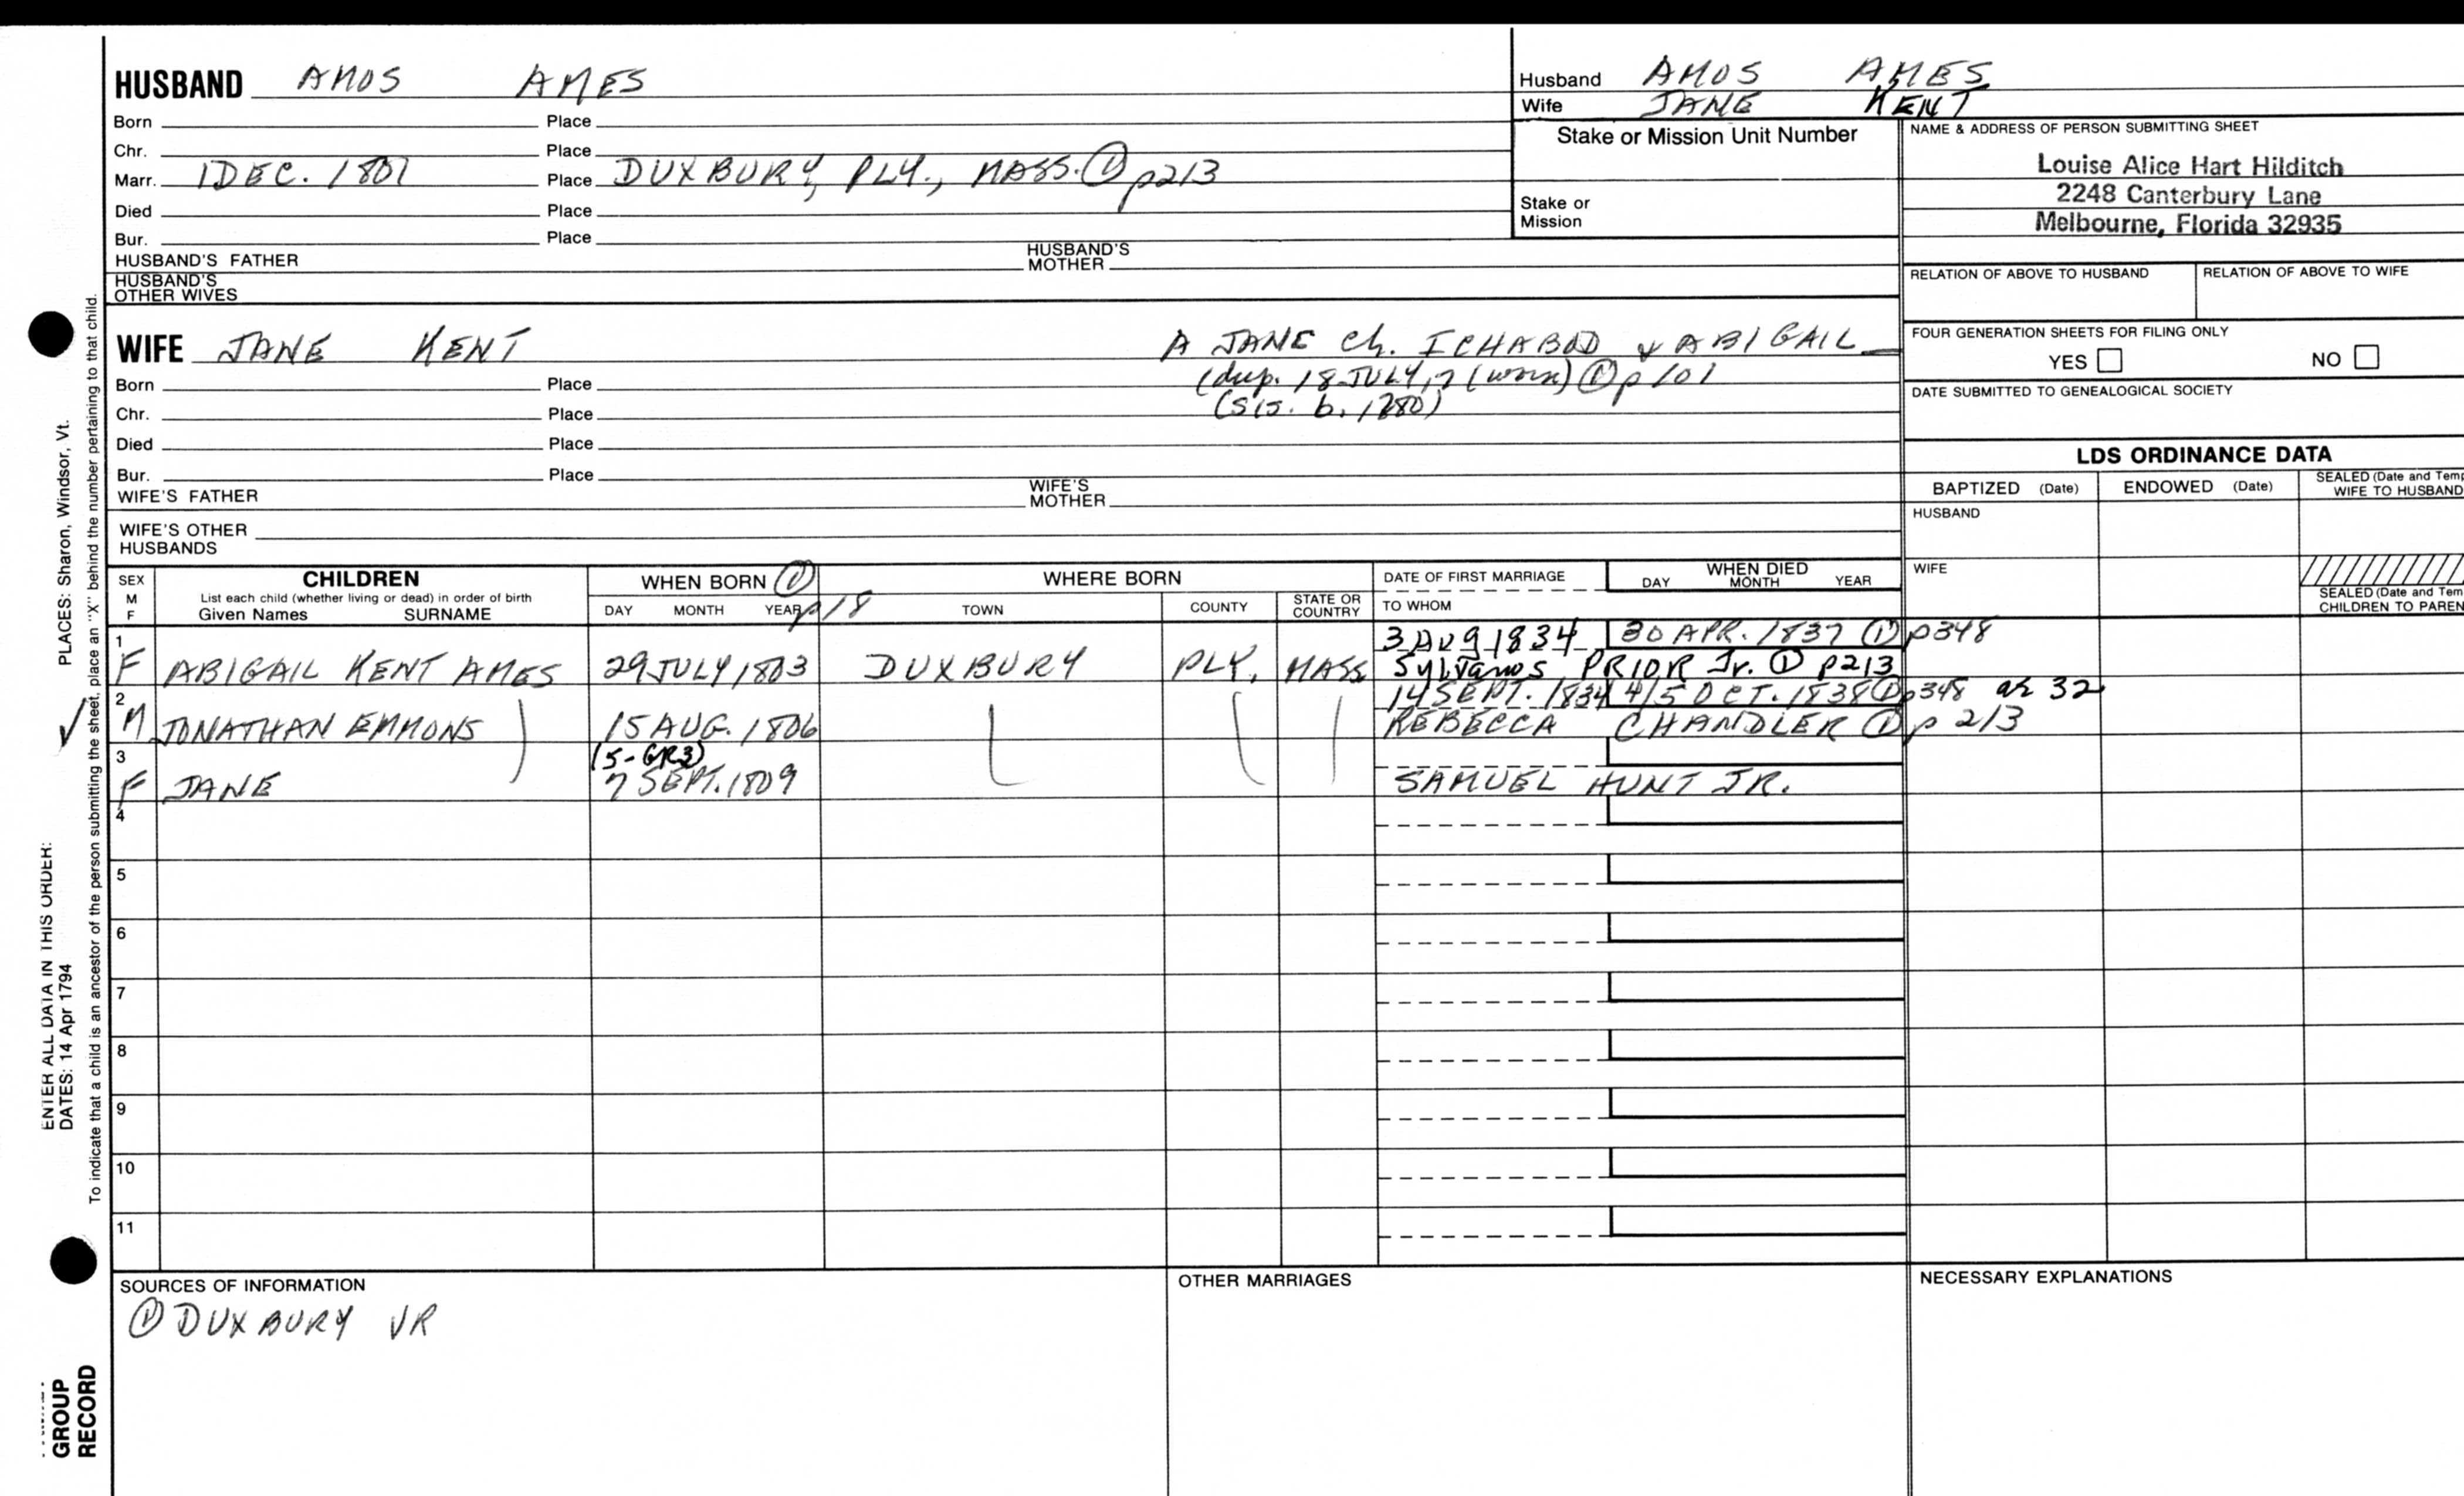 HUSBAND AMOS AMES
Born Place
Chr. Place
Marr. 1 DEC. 1801 Place DUXBURY, PLY., MASS. ① p213
Died Place
Bur. Place
HUSBAND'S FATHER HUSBAND'S MOTHER
HUSBAND'S OTHER WIVES
Husband AMOS AMES
Wife JANE KENT
Stake or Mission Unit Number
Stake or Mission
NAME & ADDRESS OF PERSON SUBMITTING SHEET
Louise Alice Hart Hilditch
2248 Canterbury Lane
Melbourne, Florida 32935
RELATION OF ABOVE TO HUSBAND RELATION OF ABOVE TO WIFE
FOUR GENERATION SHEETS FOR FILING ONLY
YES NO
DATE SUBMITTED TO GENEALOGICAL SOCIETY
WIFE JANE KENT A JANE ch. ICHABOD & ABIGAIL
Born Place (dup. 18 JULY, ① p 101
Chr. Place (sis. b. 1780)
Died Place
Bur. Place
WIFE'S FATHER WIFE'S MOTHER
WIFE'S OTHER HUSBANDS
LDS ORDINANCE DATA
BAPTIZED (Date) ENDOWED (Date) SEALED (Date and Temp
WIFE TO HUSBAND
HUSBAND
WIFE
SEALED (Date and Tem
CHILDREN TO PAREN
SEX M F
CHILDREN
List each child (whether living or dead) in order of birth
Given Names SURNAME
WHEN BORN ① p18
DAY MONTH YEAR
WHERE BORN
TOWN COUNTY STATE OR COUNTRY
DATE OF FIRST MARRIAGE
TO WHOM
WHEN DIED
DAY MONTH YEAR
1 3 AUG 1834 30 APR. 1837 ① p348
F ABIGAIL KENT AMES 29 JULY 1803 DUXBURY PLY. MASS Sylvanos PRIOR Jr. ① p213
2 14 SEPT. 1834 4/5 OCT. 1838 ① p348 ae 32
M JONATHAN EMMONS 15 AUG. 1806 REBECCA CHANDLER ① p 213
3 (5-GR3)
F JANE 7 SEPT. 1809 SAMUEL HUNT JR.
4
5
6
7
8
9
10
11
SOURCES OF INFORMATION
① DUXBURY VR
OTHER MARRIAGES
NECESSARY EXPLANATIONS
ENTER ALL DATA IN THIS ORDER:
DATES: 14 Apr 1794 PLACES: Sharon, Windsor, Vt.
To indicate that a child is an ancestor of the person submitting the sheet, place an "X" behind the number pertaining to that child.
GROUP
RECORD